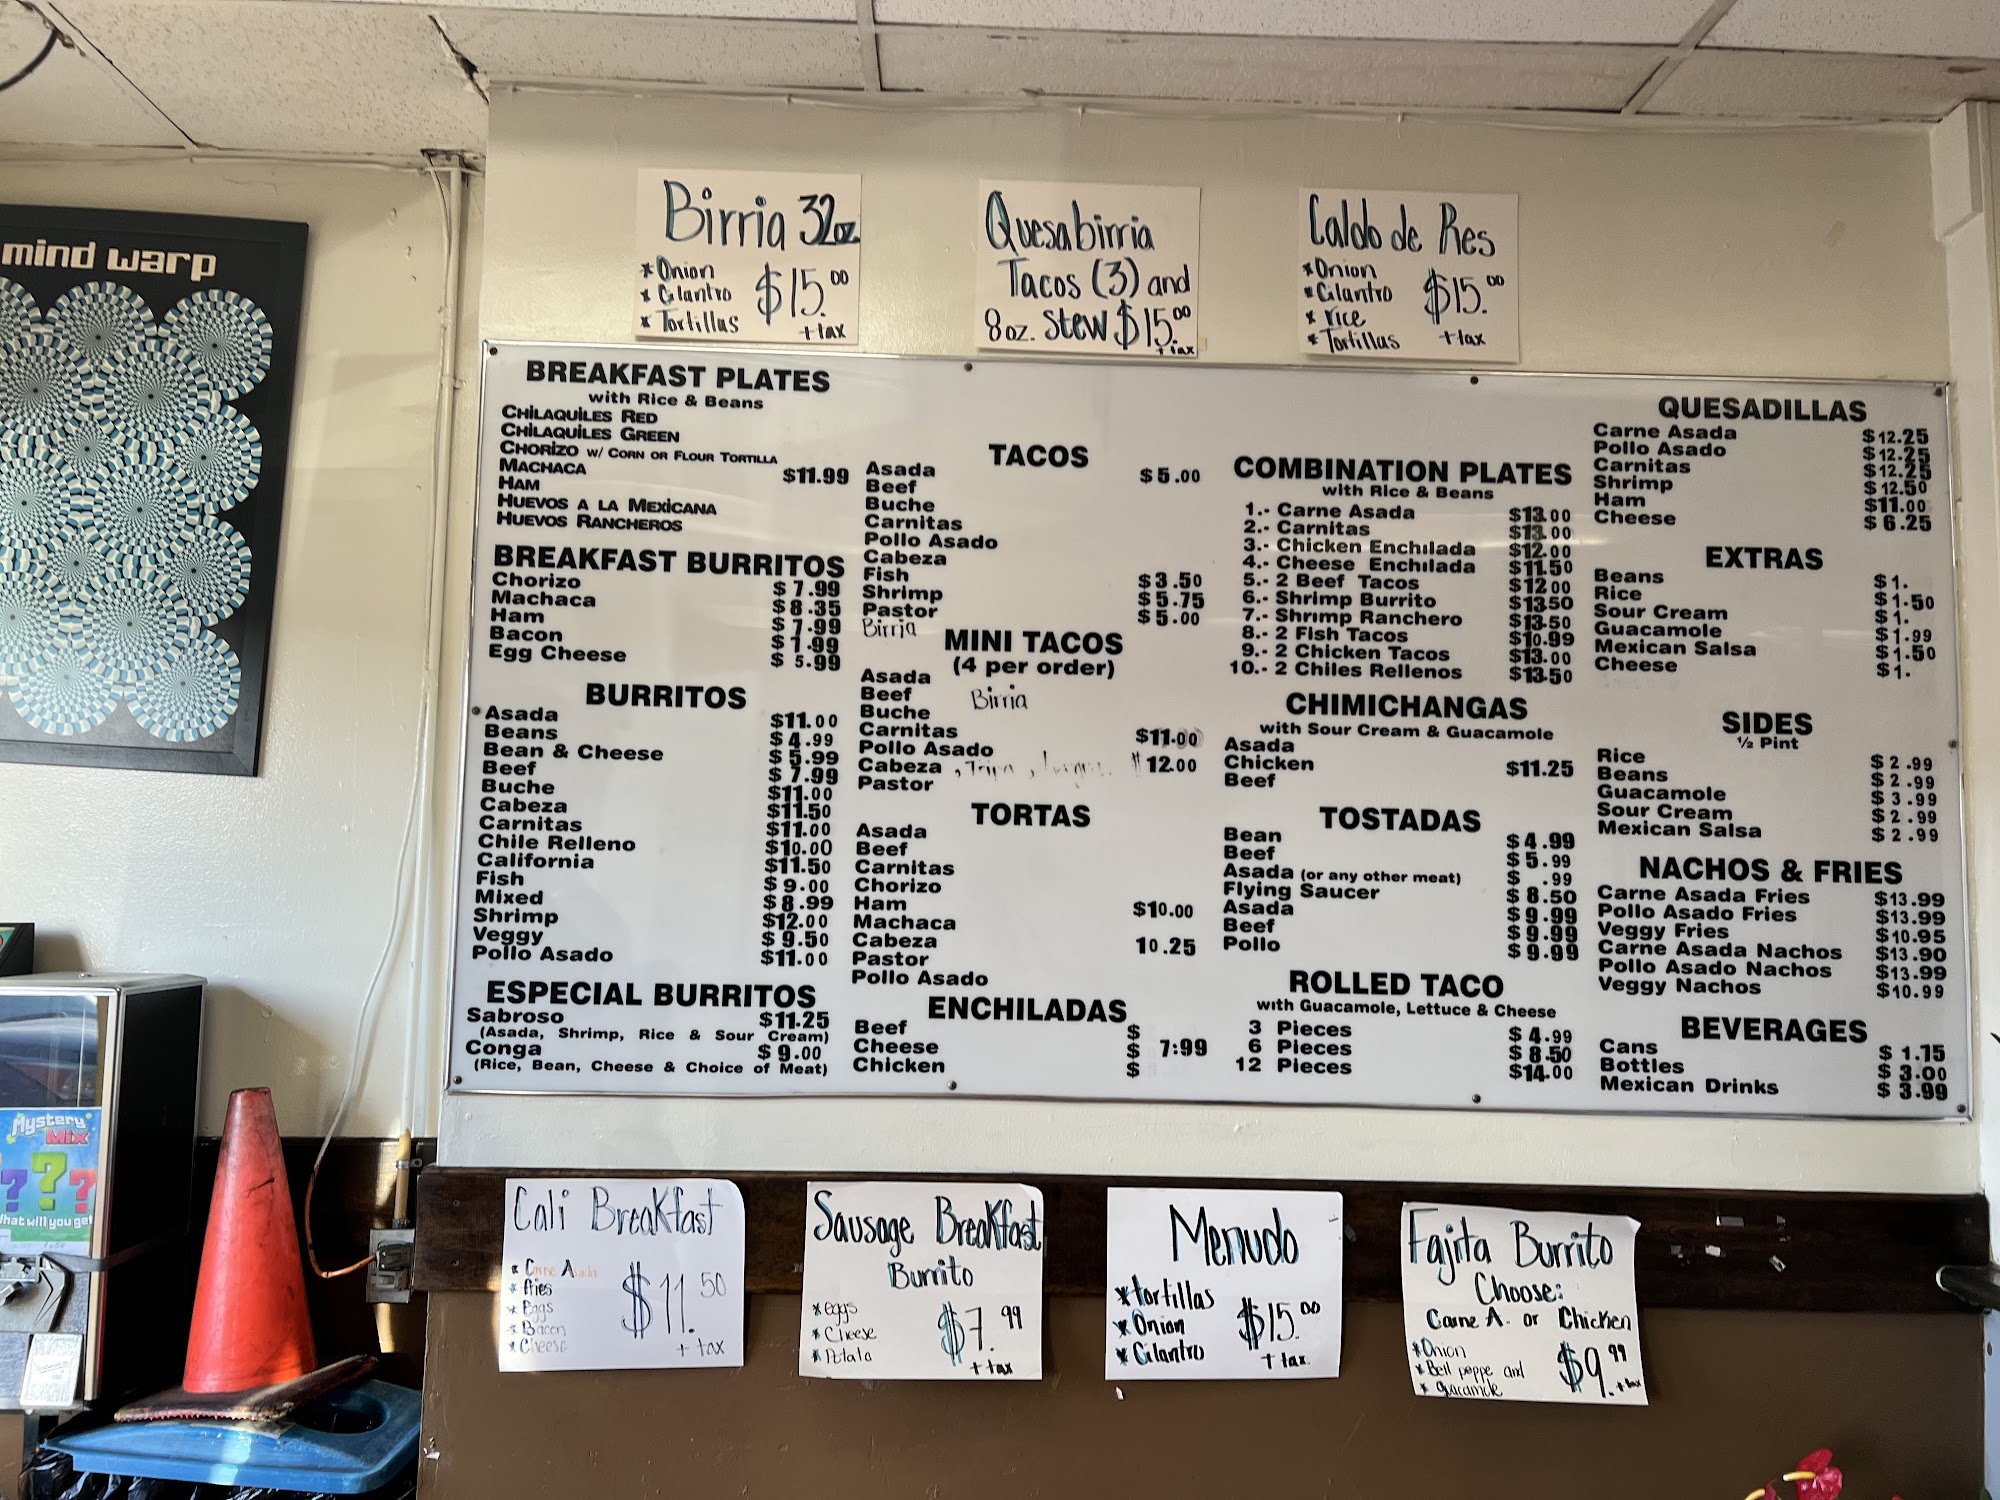 mind warp
Birria 32oz
* Onion
* Cilantro
* Tortillas
$15.00
+ tax
Quesabirria
Tacos (3) and
8oz. Stew $15.00
+ tax
Caldo de Res
* Onion
* Cilantro
* rice
* Tortillas
$15.00
+ tax
BREAKFAST PLATES
with Rice & Beans
CHILAQUILES RED
CHILAQUILES GREEN
CHORIZO W/ CORN OR FLOUR TORTILLA
MACHACA $11.99
HAM
HUEVOS A LA MEXICANA
HUEVOS RANCHEROS
BREAKFAST BURRITOS
Chorizo $ 7.99
Machaca $ 8.35
Ham $ 7.99
Bacon $ 1.99
Egg Cheese $ 5.99
BURRITOS
Asada $11.00
Beans $ 4.99
Bean & Cheese $ 5.99
Beef $ 7.99
Buche $11.00
Cabeza $11.50
Carnitas $11.00
Chile Relleno $10.00
California $11.50
Fish $ 9.00
Mixed $ 8.99
Shrimp $12.00
Veggy $ 9.50
Pollo Asado $11.00
ESPECIAL BURRITOS
Sabroso $11.25
(Asada, Shrimp, Rice & Sour Cream)
Conga $ 9.00
(Rice, Bean, Cheese & Choice of Meat)
TACOS
Asada $5.00
Beef
Buche
Carnitas
Pollo Asado
Cabeza
Fish $3.50
Shrimp $5.75
Pastor $5.00
Birria
MINI TACOS
(4 per order)
Asada
Beef Birria
Buche
Carnitas $11.00
Pollo Asado
Cabeza , Tripa , $12.00
Pastor
TORTAS
Asada
Beef
Carnitas
Chorizo
Ham $10.00
Machaca
Cabeza 10.25
Pastor
Pollo Asado
ENCHILADAS
Beef $
Cheese $ 7:99
Chicken $
COMBINATION PLATES
with Rice & Beans
1.- Carne Asada $13.00
2.- Carnitas $13.00
3.- Chicken Enchilada $12.00
4.- Cheese Enchilada $11.50
5.- 2 Beef Tacos $12.00
6.- Shrimp Burrito $13.50
7.- Shrimp Ranchero $13.50
8.- 2 Fish Tacos $10.99
9.- 2 Chicken Tacos $13.00
10.- 2 Chiles Rellenos $13.50
CHIMICHANGAS
with Sour Cream & Guacamole
Asada
Chicken $11.25
Beef
TOSTADAS
Bean $4.99
Beef $5.99
Asada (or any other meat) $ .99
Flying Saucer $8.50
Asada $9.99
Beef $9.99
Pollo $9.99
ROLLED TACO
with Guacamole, Lettuce & Cheese
3 Pieces $ 4.99
6 Pieces $ 8.50
12 Pieces $14.00
QUESADILLAS
Carne Asada $12.25
Pollo Asado $12.25
Carnitas $12.25
Shrimp $12.50
Ham $11.00
Cheese $ 6.25
EXTRAS
Beans $1.
Rice $1.50
Sour Cream $1.
Guacamole $1.99
Mexican Salsa $1.50
Cheese $1.
SIDES
½ Pint
Rice $2.99
Beans $2.99
Guacamole $3.99
Sour Cream $2.99
Mexican Salsa $2.99
NACHOS & FRIES
Carne Asada Fries $13.99
Pollo Asado Fries $13.99
Veggy Fries $10.95
Carne Asada Nachos $13.90
Pollo Asado Nachos $13.99
Veggy Nachos $10.99
BEVERAGES
Cans $ 1.75
Bottles $ 3.00
Mexican Drinks $ 3.99
Mystery
Mix
? ? ?
what will you get
Cali Breakfast
* Carne Asada
* fries
* Eggs
* Bacon
* Cheese
$11.50
+ tax
Sausage Breakfast
Burrito
* eggs
* Cheese
* Potato
$7.99
+ tax
Menudo
* tortillas
* Onion
* Cilantro
$15.00
+ tax.
Fajita Burrito
Choose:
Carne A. or Chicken
* Onion
* Bell peppe and
* guacamole
$9.99
+ tax